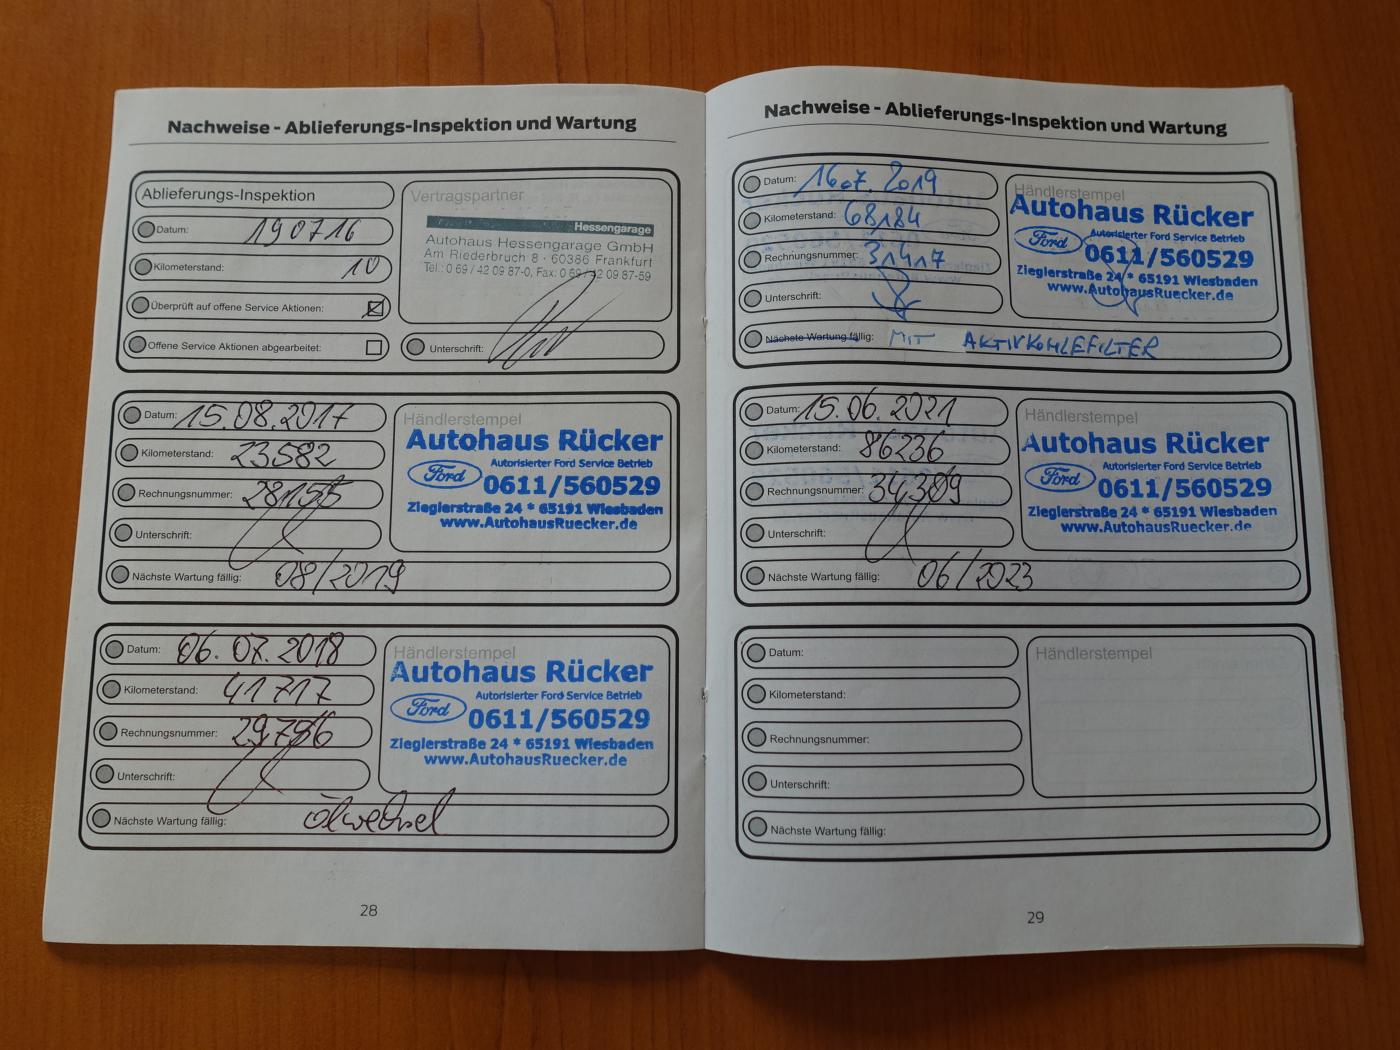 Nachweise - Ablieferungs-Inspektion und Wartung
Ablieferungs-Inspektion
Datum: 190716
Kilometerstand: 10
Überprüft auf offene Service Aktionen:
Offene Service Aktionen abgearbeitet:
Vertragspartner
Hessengarage
Autohaus Hessengarage GmbH
Am Riederbruch 8 · 60386 Frankfurt
Tel.: 0 69 / 42 09 87-0, Fax: 0 69 / 42 09 87-59
Unterschrift:
Datum: 15.08.2017
Kilometerstand: 23582
Rechnungsnummer:
Unterschrift:
Nächste Wartung fällig: 08/2019
Händlerstempel
Autohaus Rücker
Autorisierter Ford Service Betrieb
Ford 0611/560529
Zieglerstraße 24 * 65191 Wiesbaden
www.AutohausRuecker.de
Datum: 06.07.2018
Kilometerstand: 41717
Rechnungsnummer:
Unterschrift:
Nächste Wartung fällig: Ölwechsel
Händlerstempel
Autohaus Rücker
Autorisierter Ford Service Betrieb
Ford 0611/560529
Zieglerstraße 24 * 65191 Wiesbaden
www.AutohausRuecker.de
28
Nachweise - Ablieferungs-Inspektion und Wartung
Datum: 16.07.2019
Kilometerstand: 68184
Rechnungsnummer: 31417
Unterschrift:
Nächste Wartung fällig: MIT AKTIVKOHLEFILTER
Händlerstempel
Autohaus Rücker
Autorisierter Ford Service Betrieb
Ford 0611/560529
Zieglerstraße 24 * 65191 Wiesbaden
www.AutohausRuecker.de
Datum: 15.06.2021
Kilometerstand: 86236
Rechnungsnummer: 34309
Unterschrift:
Nächste Wartung fällig: 06/2023
Händlerstempel
Autohaus Rücker
Autorisierter Ford Service Betrieb
Ford 0611/560529
Zieglerstraße 24 * 65191 Wiesbaden
www.AutohausRuecker.de
Datum:
Kilometerstand:
Rechnungsnummer:
Unterschrift:
Nächste Wartung fällig:
Händlerstempel
29